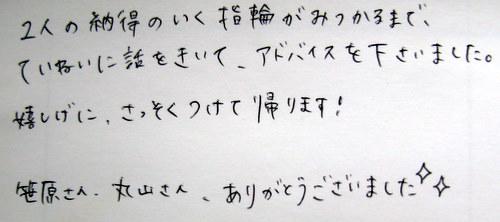 2人の納得のいく指輪がみつかるまで、
ていねいに話をきいて、アドバイスを下さいました。
嬉しげに、さっそくつけて帰ります!
笹原さん、丸山さん、ありがとうございました✧✧